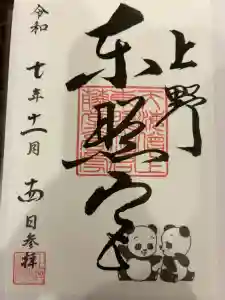 上野
東照宮
令和七年十一月 日参拝